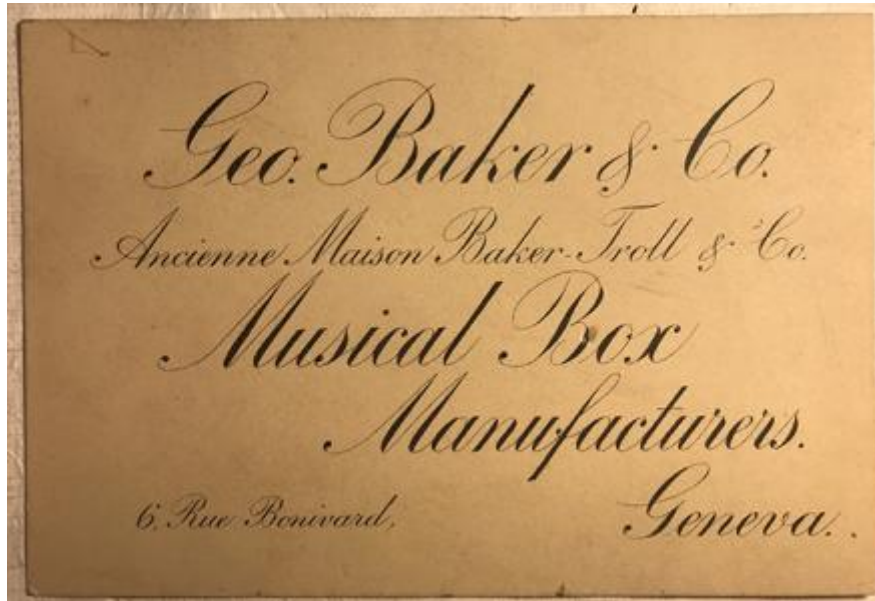 Geo. Baker & Co.
Ancienne Maison Baker-Troll & Co.
Musical Box
Manufacturers.
6, Rue Bonivard,
Geneva.